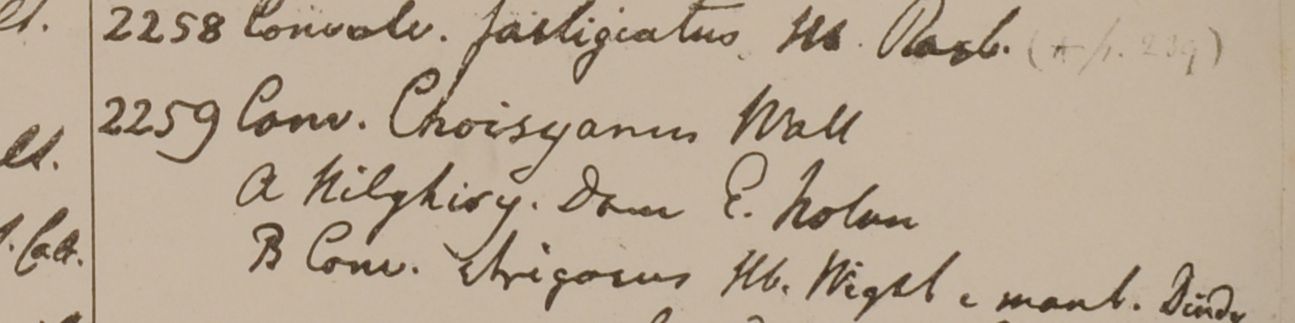 Cl.
2258 Convolv. fastigiatus Hb. Roxb. (+ p. 239)
2259 Conv. Choisyanus Wall
Cl.
A Nilghiry. Dom E. Noton
B Conv. strigosus Hb. Wight e mont. Dindy
Calt.